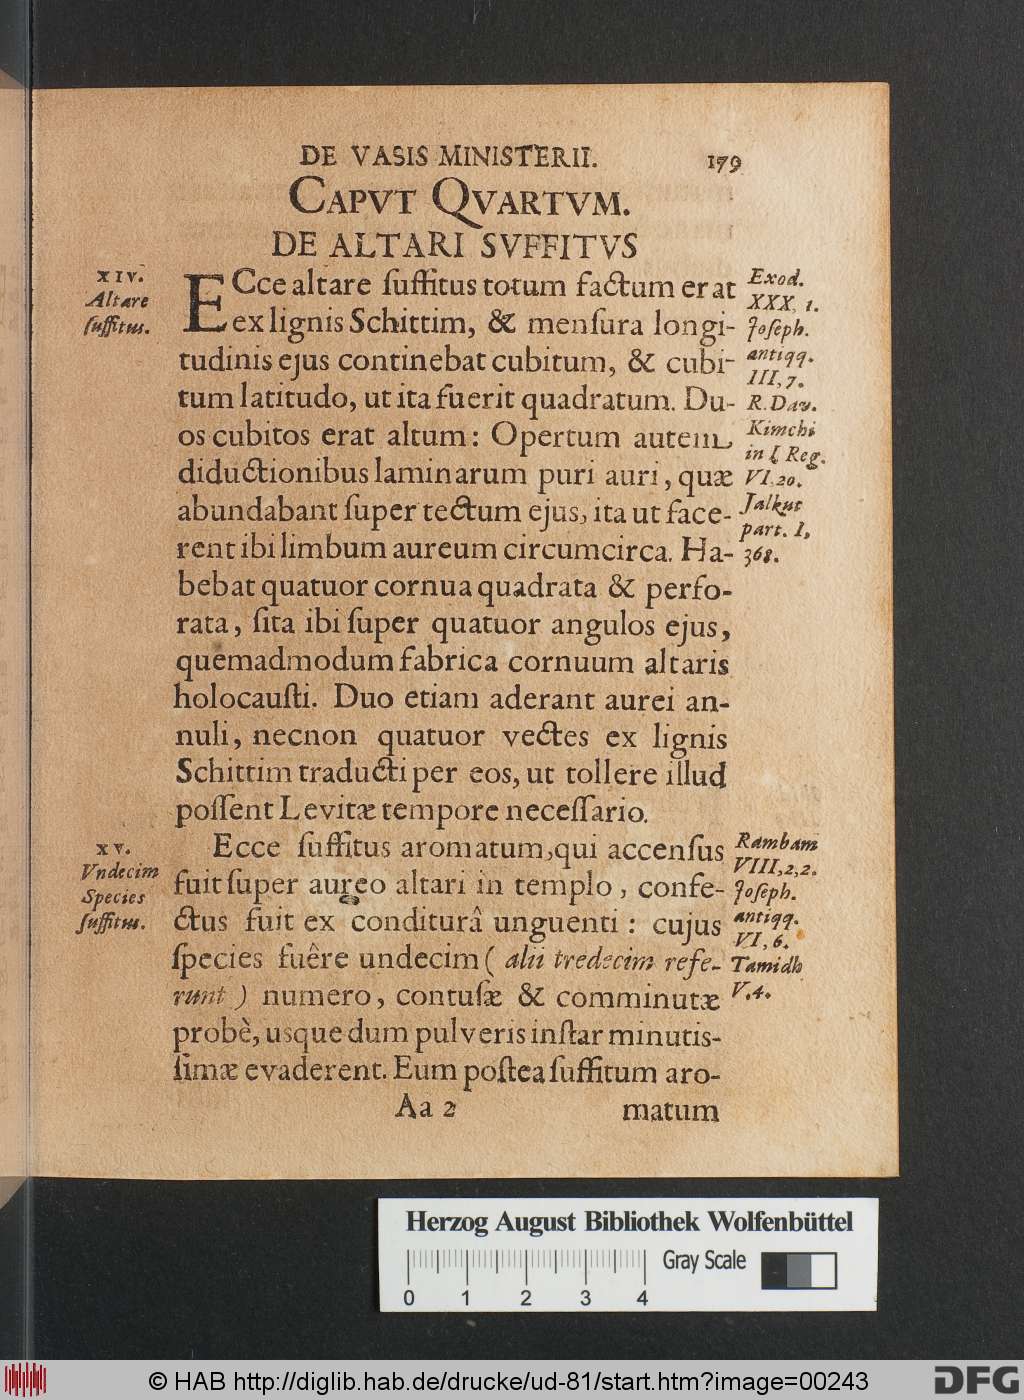 DE VASIS MINISTERII. 179
CAPVT QVARTVM.
DE ALTARI SVFFITVS
XIV.
Altare
ſuffitus.
ECce altare ſuffitus totum factum erat
ex lignis Schittim, & menſura longi-
tudinis ejus continebat cubitum, & cubi-
tum latitudo, ut ita fuerit quadratum. Du-
os cubitos erat altum: Opertum autem
diductionibus laminarum puri auri, quæ
abundabant ſuper tectum ejus, ita ut face-
rent ibi limbum aureum circumcirca. Ha-
bebat quatuor cornua quadrata & perfo-
rata, ſita ibi ſuper quatuor angulos ejus,
quemadmodum fabrica cornuum altaris
holocauſti. Duo etiam aderant aurei an-
nuli, necnon quatuor vectes ex lignis
Schittim traducti per eos, ut tollere illud
poſſent Levitæ tempore neceſſario.
Exod.
XXX, 1.
Joſeph.
antiqq.
III, 7.
R. Dav.
Kimchi
in I Reg.
VI, 20.
Jalkut
part. I,
368.
XV.
Vndecim
Species
ſuffitus.
Ecce ſuffitus aromatum, qui accenſus
fuit ſuper aureo altari in templo, confe-
ctus fuit ex conditurâ unguenti: cujus
ſpecies fuêre undecim (alii tredecim refe-
runt) numero, contuſæ & comminutæ
probè, usque dum pulveris inſtar minutis-
ſimæ evaderent. Eum poſtea ſuffitum aro-
Rambam
VIII, 2, 2.
Joſeph.
antiqq.
VI, 6.
Tamidh
V. 4.
Aa 2 matum
Herzog August Bibliothek Wolfenbüttel
Gray Scale
0 1 2 3 4
© HAB http://diglib.hab.de/drucke/ud-81/start.htm?image=00243
DFG